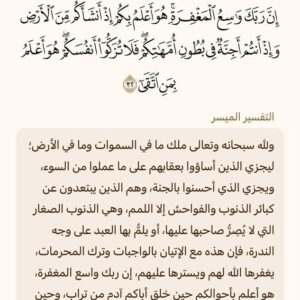 إِنَّ رَبَّكَ وَٰسِعُ ٱلْمَغْفِرَةِ ۚ هُوَ أَعْلَمُ بِكُمْ إِذْ أَنشَأَكُم مِّنَ ٱلْأَرْضِ
وَإِذْ أَنتُمْ أَجِنَّةٌ فِى بُطُونِ أُمَّهَٰتِكُمْ ۖ فَلَا تُزَكُّوٓا۟ أَنفُسَكُمْ ۖ هُوَ أَعْلَمُ
بِمَنِ ٱتَّقَىٰٓ ٣٢
التفسير الميسر
ولله سبحانه وتعالى ملك ما في السموات وما في الأرض؛
ليجزي الذين أساؤوا بعقابهم على ما عملوا من السوء،
ويجزي الذي أحسنوا بالجنة، وهم الذين يبتعدون عن
كبائر الذنوب والفواحش إلا اللمم، وهي الذنوب الصغار
التي لا يُصِرُّ صاحبها عليها، أو يلمُّ بها العبد على وجه
الندرة، فإن هذه مع الإتيان بالواجبات وترك المحرمات،
يغفرها الله لهم ويسترها عليهم، إن ربك واسع المغفرة،
هو أعلم بأحوالكم حين خلق أباكم آدم من تراب، وحين